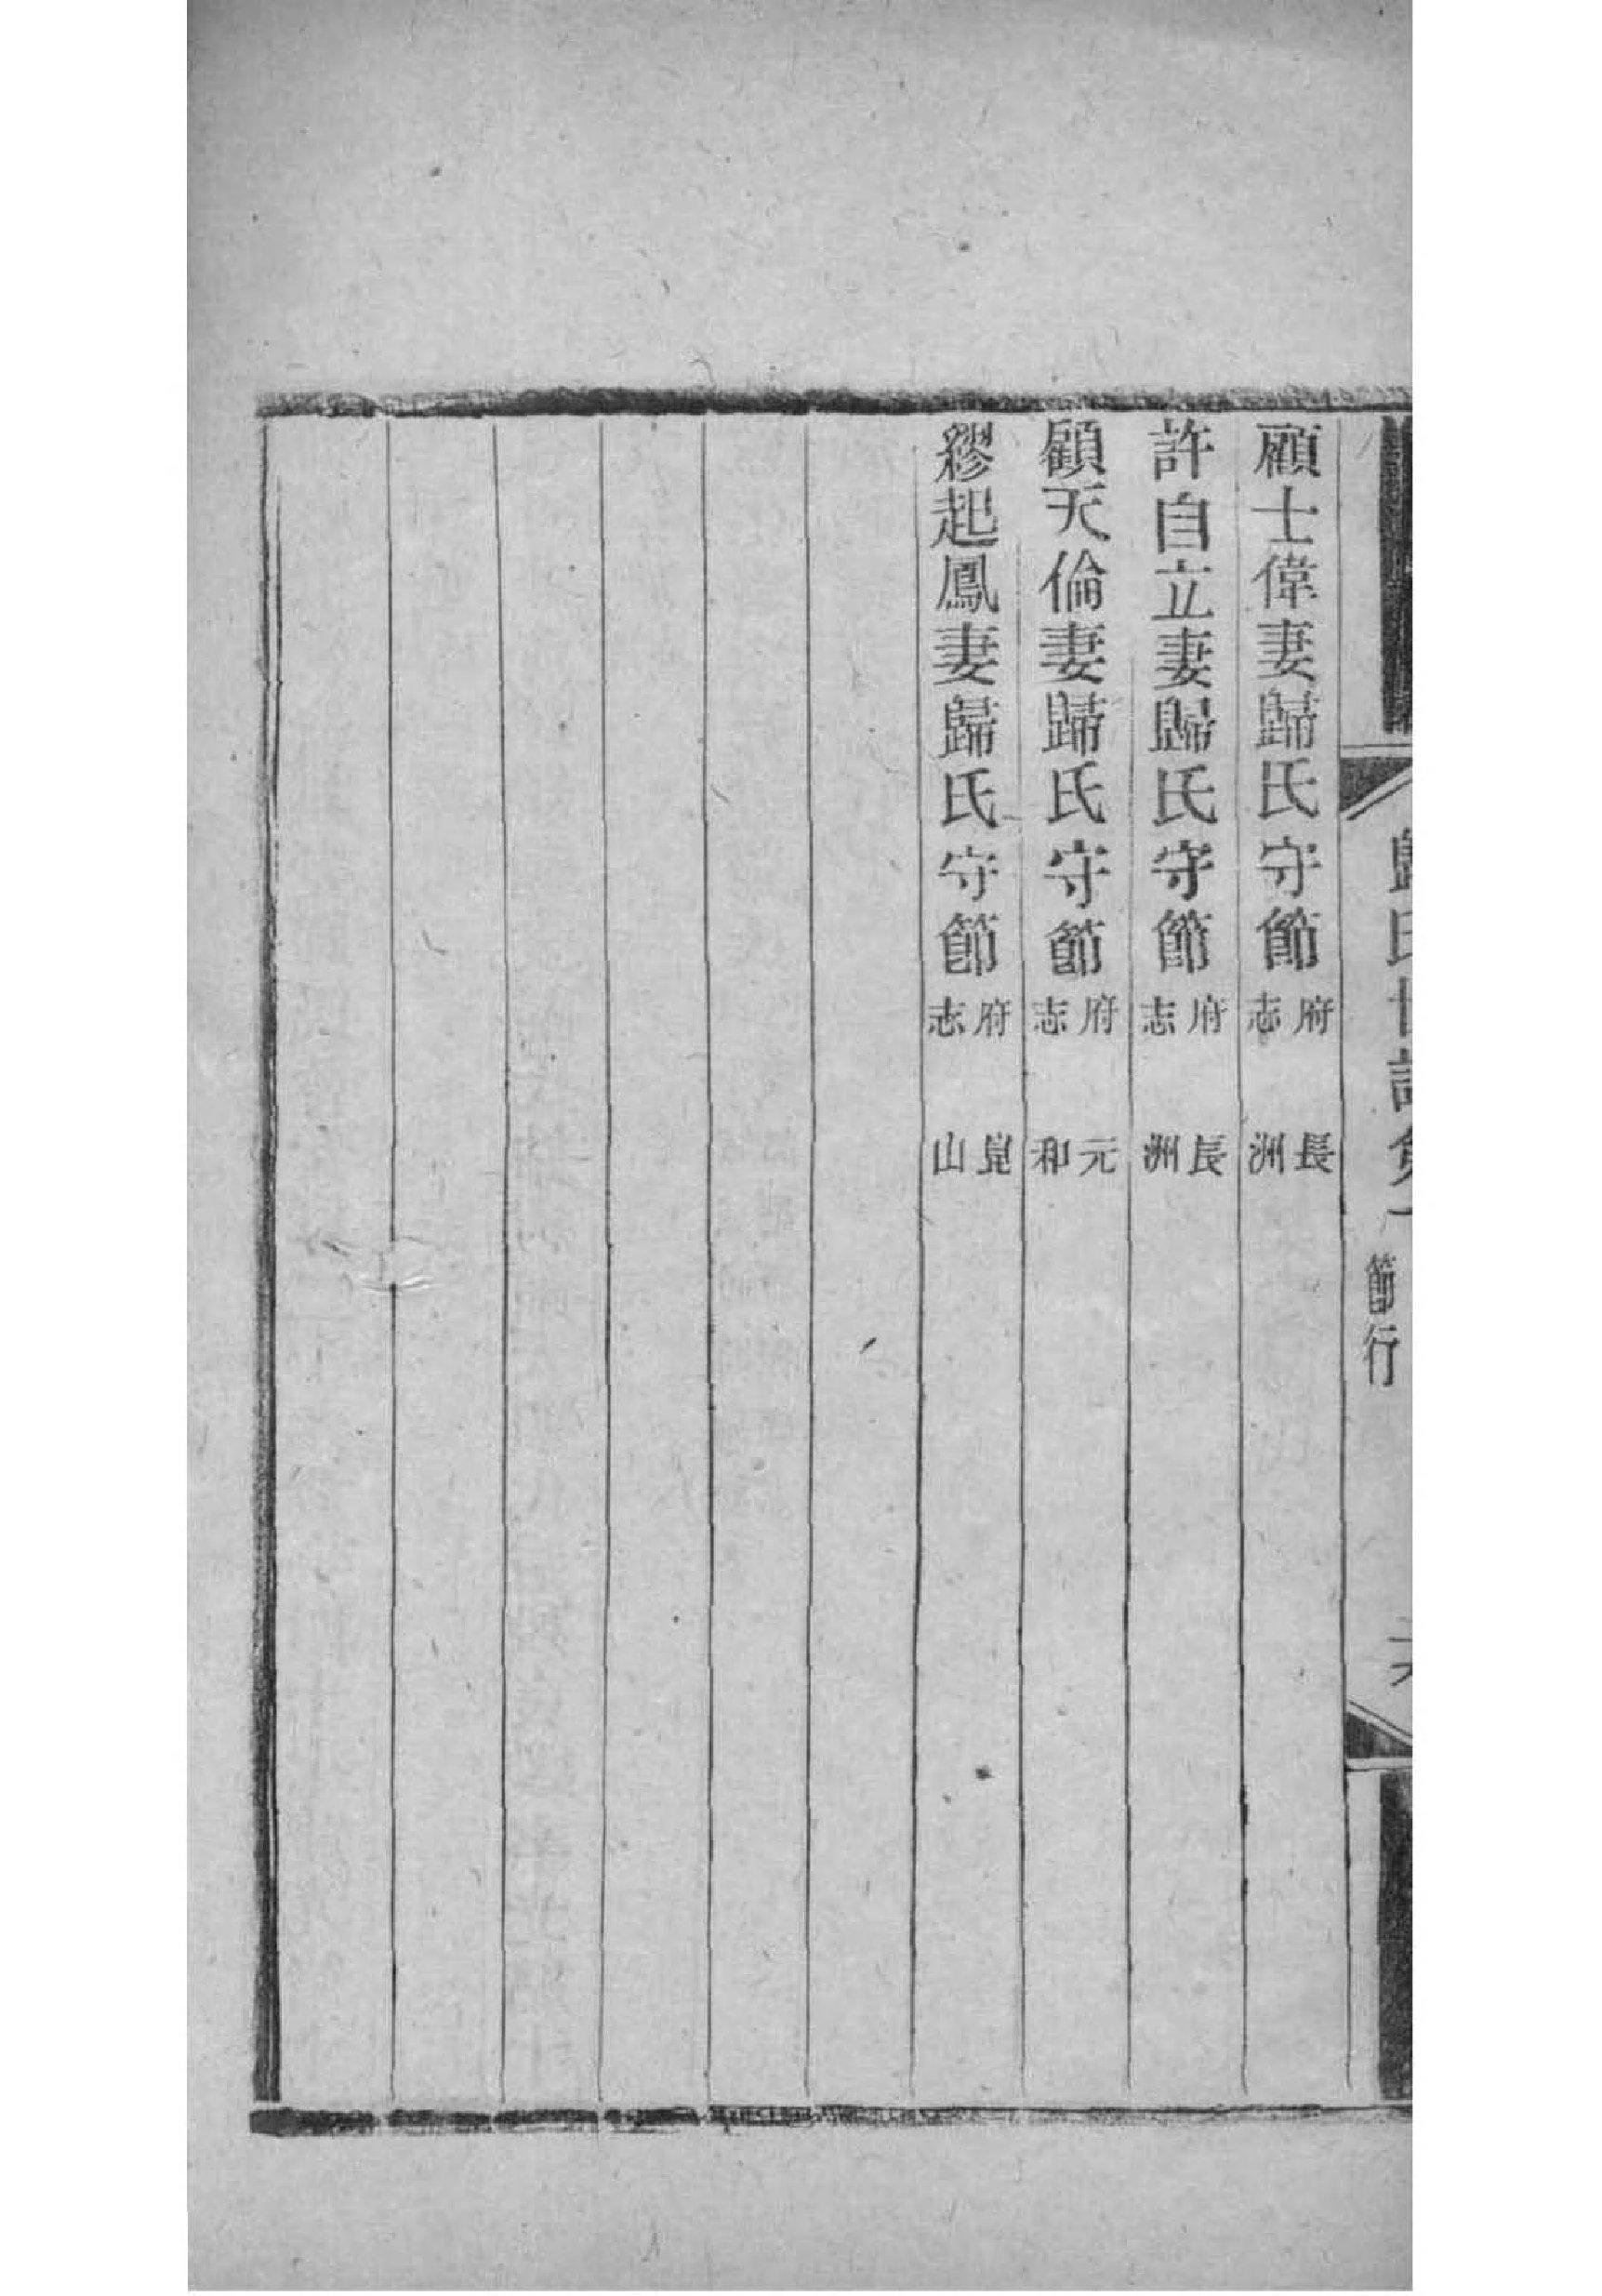 歸氏世譜 節行 六
顧士偉妻歸氏守節 府志 長洲
許自立妻歸氏守節 府志 長洲
顧天倫妻歸氏守節 府志 元和
繆起鳳妻歸氏守節 府志 崑山